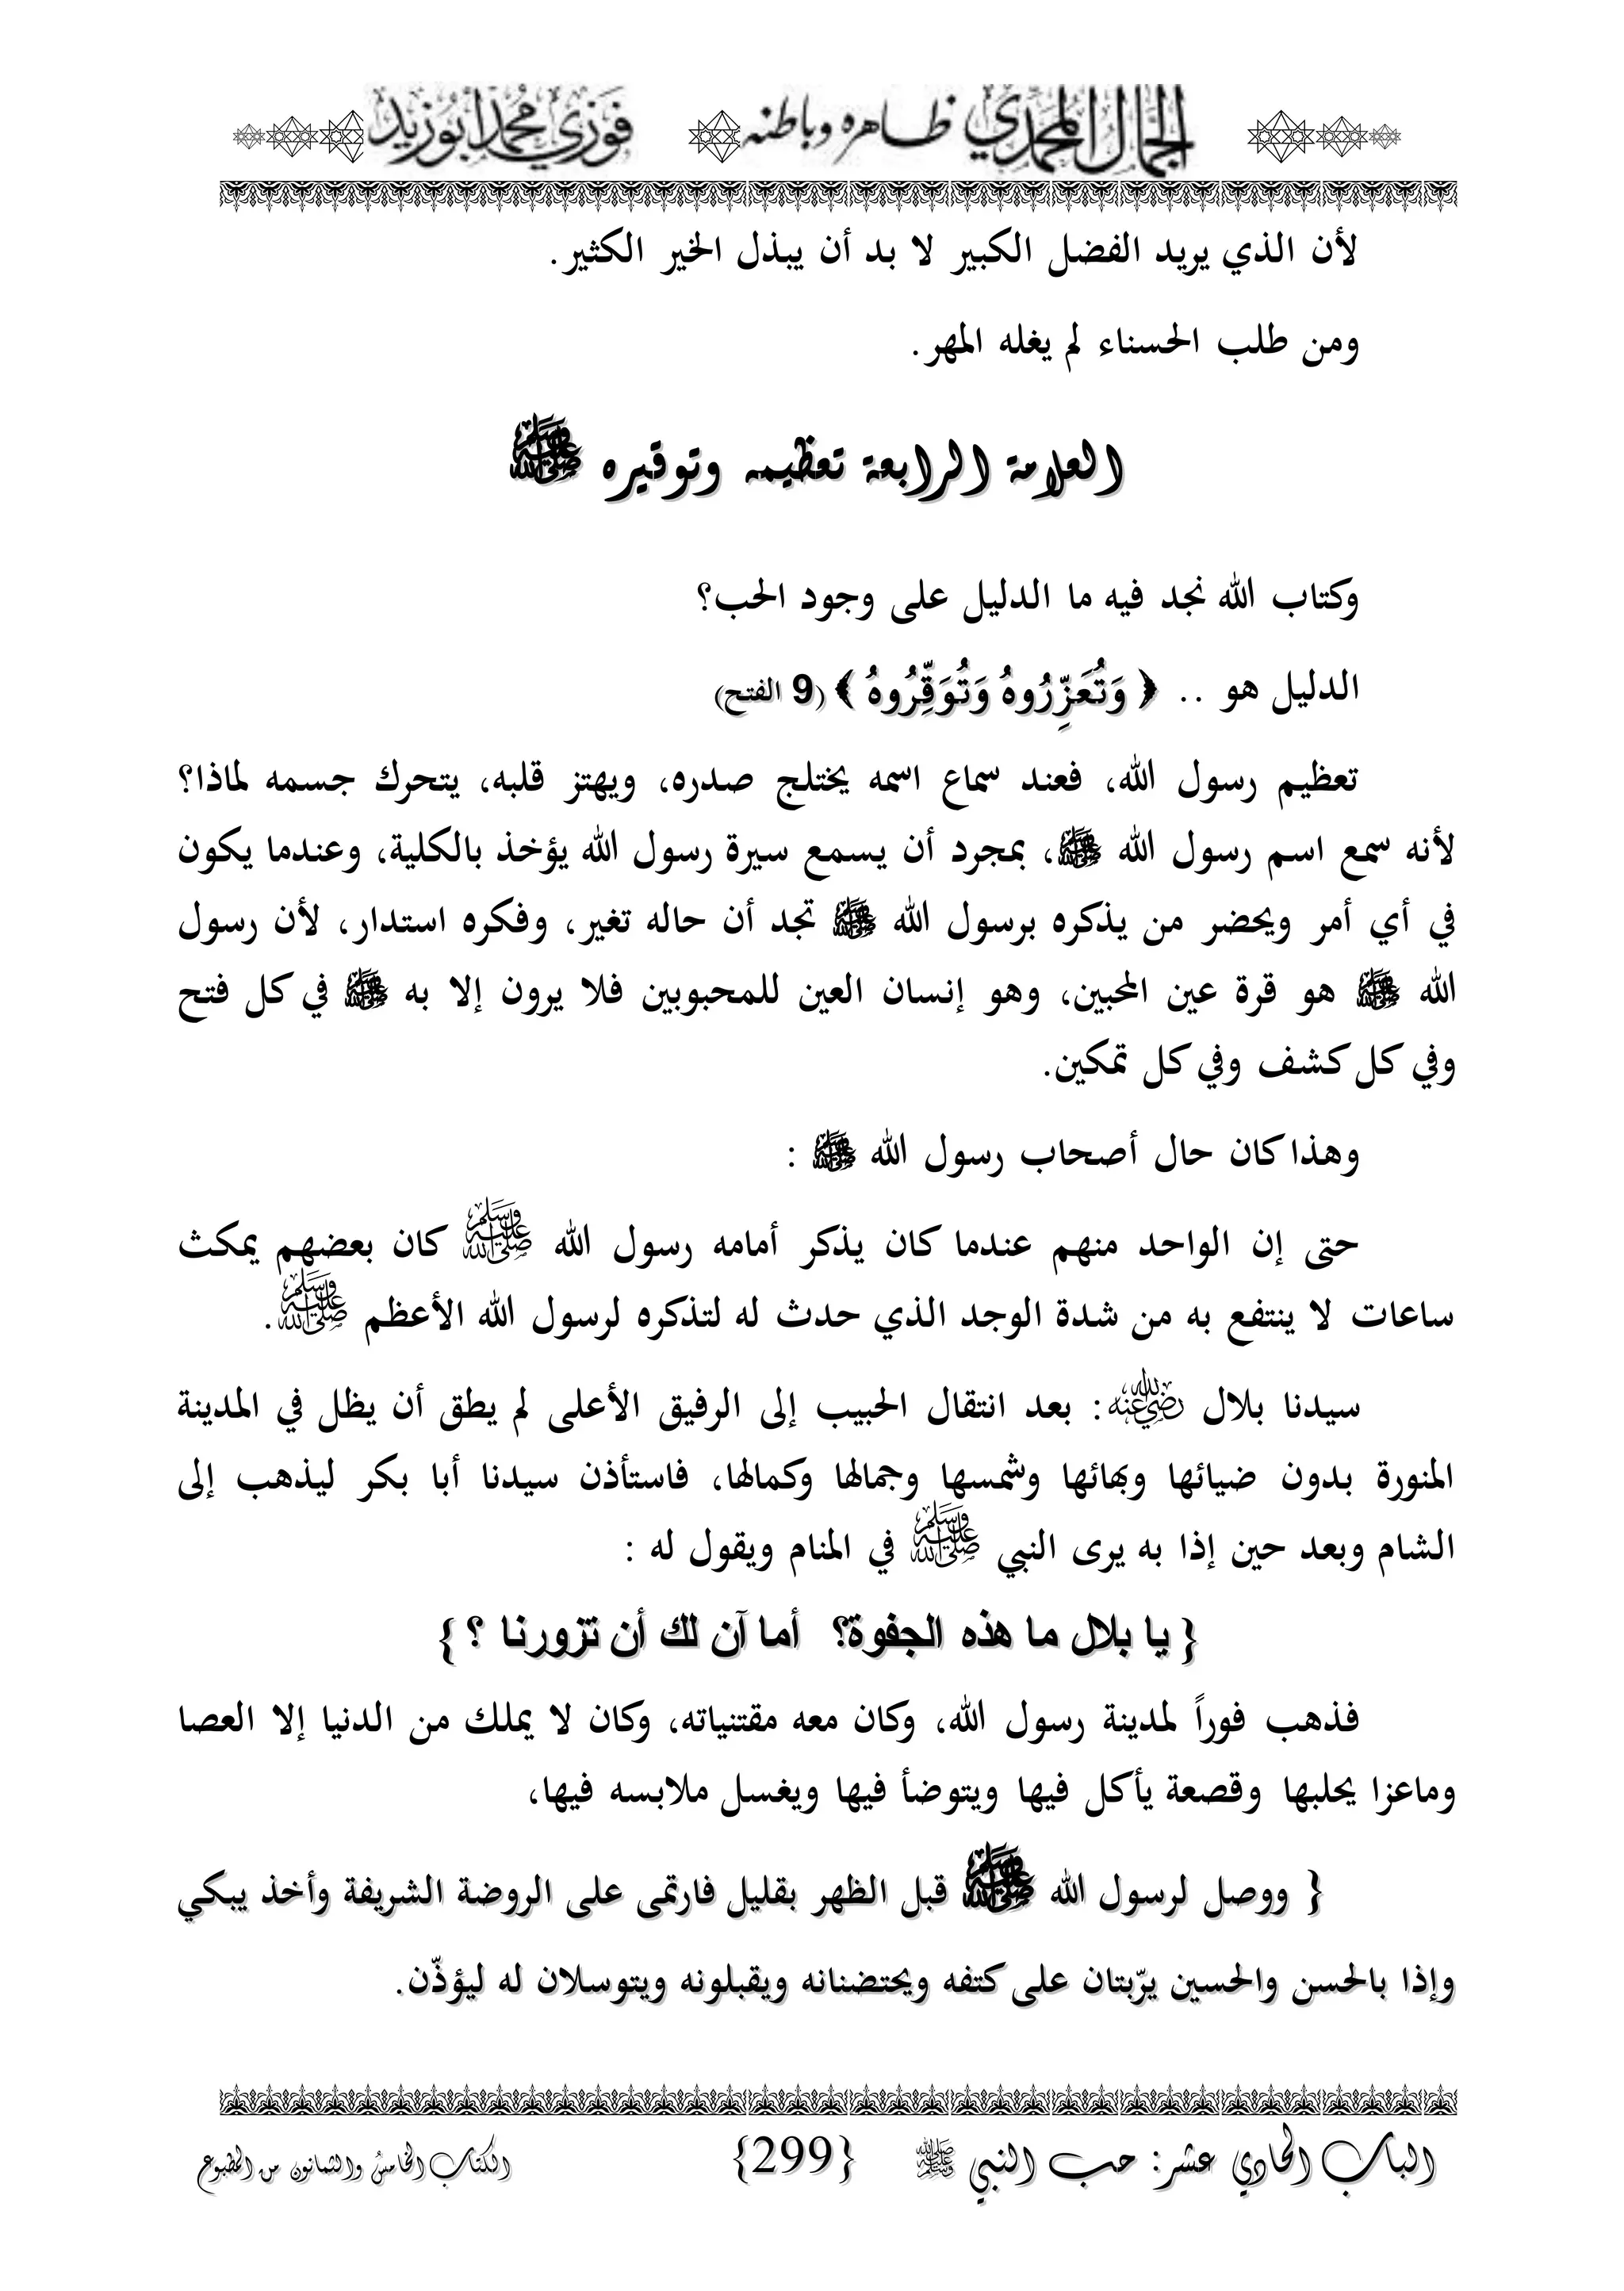 الجمال المحمدي ظاهره وباطنه فوزي محمد أبوزيد
لأن الذي يريد الفضل الكبير لا بد أن يبذل الخير الكثير.
ومن طلب الحسناء لم يغله المهر.
العلامة الرابعة تعظيمه وتوقيره ﷺ
وكتاب الله نجد فيه ما الدليل على وجود الحب؟
الدليل هو .. ﴿ وَتُعَزِّرُوهُ وَتُوَقِّرُوهُ ﴾ (9 الفتح)
تعظيم رسول الله، فعند سماع اسمه يختلج صدره، ويهتز قلبه، يتحرك جسمه لماذا؟
لأنه سمع اسم رسول الله ﷺ، بمجرد أن يسمع سيرة رسول الله يؤخذ بالكلية، وعندما يكون
في أي أمر ويحضر من يذكره برسول الله ﷺ تجد أن حاله تغير، وفكره استدار، لأن رسول
الله ﷺ هو قرة عين المحبين، وهو إنسان العين للمحبوبين فلا يرون إلا به ﷺ في كل فتح
وفي كل كشف وفي كل تمكين.
وهذا كان حال أصحاب رسول الله ﷺ :
حتى إن الواحد منهم عندما كان يذكر أمامه رسول الله ﷺ كان بعضهم يمكث
ساعات لا ينتفع به من شدة الوجد الذي حدث له لتذكره لرسول الله الأعظم ﷺ.
سيدنا بلال رضي الله عنه: بعد انتقال الحبيب إلى الرفيق الأعلى لم يطق أن يظل في المدينة
المنورة بدون ضيائها وبهائها وشمسها وجمالها وكمالها، فاستأذن سيدنا أبا بكر ليذهب إلى
الشام وبعد حين إذا به يرى النبي ﷺ في المنام ويقول له :
{ يا بلال ما هذه الجفوة؟ أما آن لك أن تزورنا ؟ }
فذهب فوراً لمدينة رسول الله، وكان معه مقتنياته، وكان لا يملك من الدنيا إلا العصا
وماعزا يحلبها وقصعة يأكل فيها ويتوضأ فيها ويغسل ملابسه فيها،
{ ووصل لرسول الله ﷺ قبل الظهر بقليل فارتمى على الروضة الشريفة وأخذ يبكي
وإذا بالحسن والحسين يرّبتان على كتفه ويحتضنانه ويقبلونه ويتوسلان له ليؤذّن.
الباب الحادي عشر: حب النبي ﷺ {299} الكتاب الخامس والثمانون من المطبوع